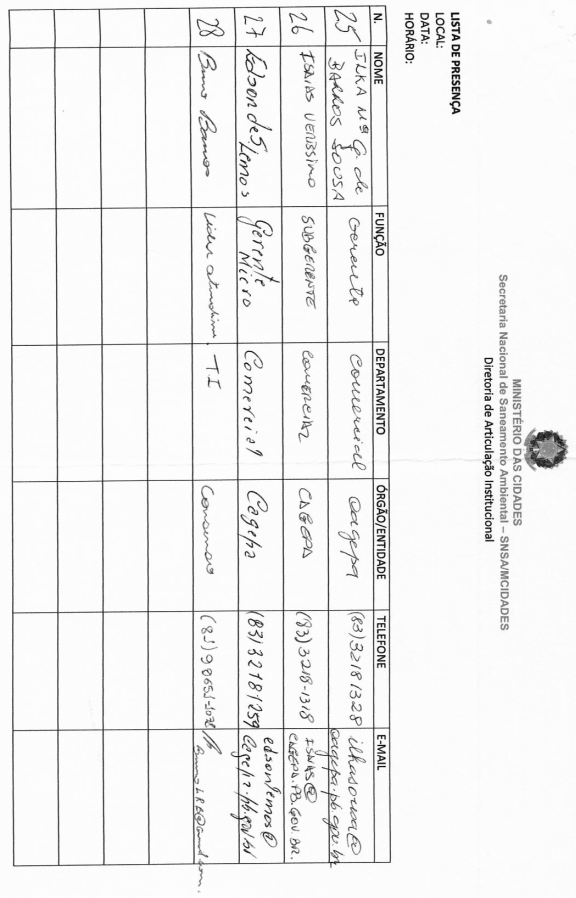 MINISTÉRIO DAS CIDADES
Secretaria Nacional de Saneamento Ambiental – SNSA/MCIDADES
Diretoria de Articulação Institucional
LISTA DE PRESENÇA
LOCAL:
DATA:
HORÁRIO:
N. NOME FUNÇÃO DEPARTAMENTO ÓRGÃO/ENTIDADE TELEFONE E-MAIL
25 ILKA Mª G. de Gerente comercial cagepa (83)32181328 ilkasousa@
BARROS SOUSA cagepa.pb.gov.br
26 ISAIAS VERISSIMO SUBGERENTE COMERCIAL CAGEPA (83)3218-1318 ISAIAS@
CAGEPA.PB.GOV.BR.
27 Edson de S. Gerente Comercial Cagepa (83)32181259 edsonlemos@
Lemos Micro cagepa.pb.gov.br
28 Bruno Barros Lider T.I